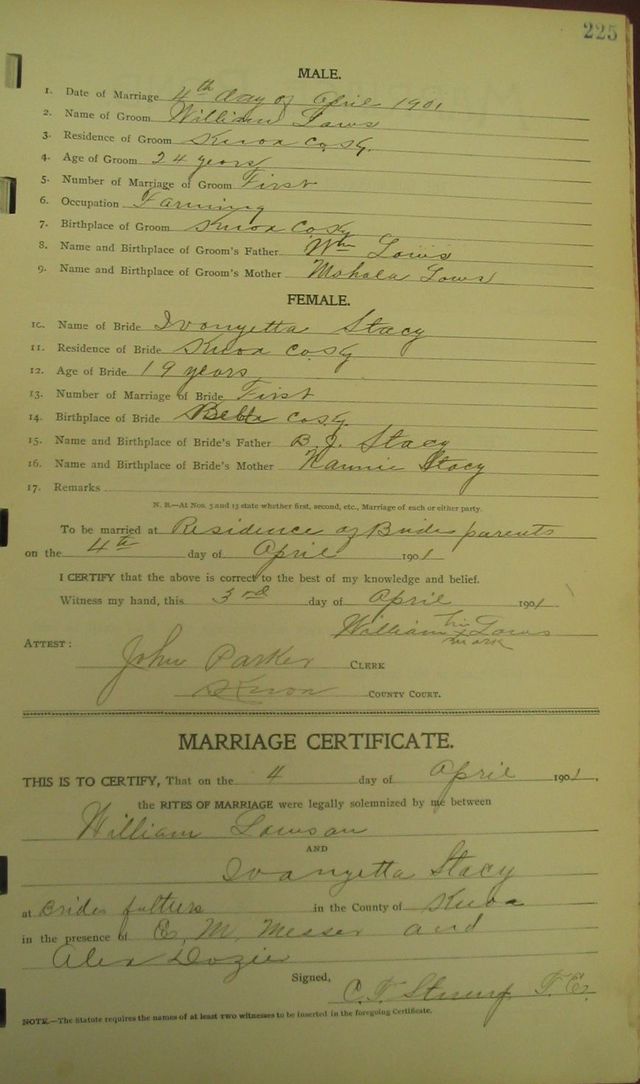 225
MALE.
1. Date of Marriage 4th day of April 1901
2. Name of Groom William Laws
3. Residence of Groom Knox Co. Ky.
4. Age of Groom 24 years
5. Number of Marriage of Groom First
6. Occupation Farming
7. Birthplace of Groom Knox Co. Ky
8. Name and Birthplace of Groom's Father Wm Laws
9. Name and Birthplace of Groom's Mother Mahala Laws
FEMALE.
10. Name of Bride Ivanyetta Stacy
11. Residence of Bride Knox Co. Ky
12. Age of Bride 19 years
13. Number of Marriage of Bride First
14. Birthplace of Bride Co. Ky.
15. Name and Birthplace of Bride's Father B. J. Stacy
16. Name and Birthplace of Bride's Mother Nannie Stacy
17. Remarks
N. B.—At Nos. 5 and 13 state whether first, second, etc., Marriage of each or either party.
To be married at Residence of Brides parents
on the 4th day of April 1901
I CERTIFY that the above is correct to the best of my knowledge and belief.
Witness my hand, this 3rd day of April 1901
William his mark Laws
ATTEST:
John Parker CLERK
Knox COUNTY COURT.
MARRIAGE CERTIFICATE.
THIS IS TO CERTIFY, That on the 4 day of April 1901.
the RITES OF MARRIAGE were legally solemnized by me between
William Lawson
AND
Ivanyetta Stacy
at Brides in the County of Knox
in the presence of E. M. Messer and
Alex Dozier
Signed,
C. T.
NOTE.—The Statute requires the names of at least two witnesses to be inserted in the foregoing Certificate.